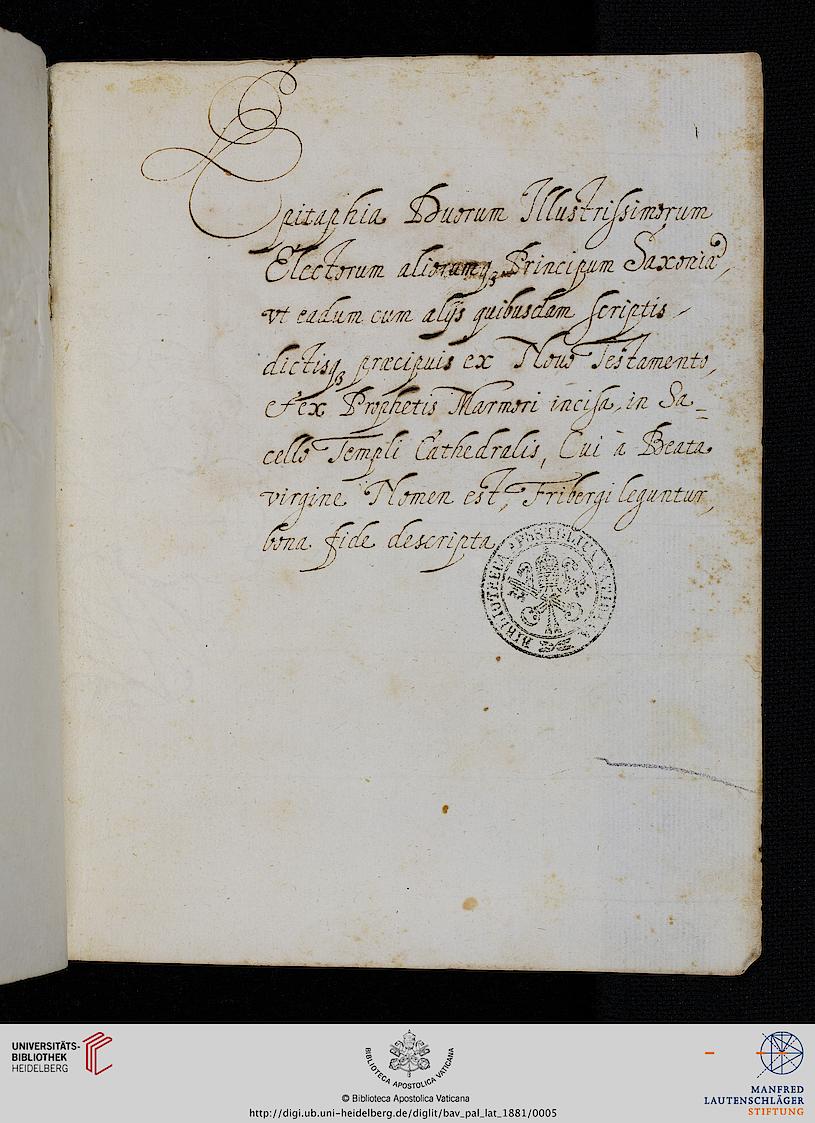 1
Epitaphia Duorum Illustrissimorum
Electorum aliorumq; Principum Saxoniæ,
vt eadum cum alijs quibusdam scriptis
dictisq; præcipuis ex Nouo Testamento,
et ex Prophetis Marmori incisa, in Sa=
cello Templi Cathedralis, Cui à Beata
virgine Nomen est, Fribergi leguntur,
bona fide descripta
BIBLIOTHECA APOSTOLICA VATICANA
UNIVERSITÄTS-
BIBLIOTHEK
HEIDELBERG
BIBLIOTECA APOSTOLICA VATICANA
© Biblioteca Apostolica Vaticana
http://digi.ub.uni-heidelberg.de/diglit/bav_pal_lat_1881/0005
MANFRED
LAUTENSCHLÄGER
STIFTUNG